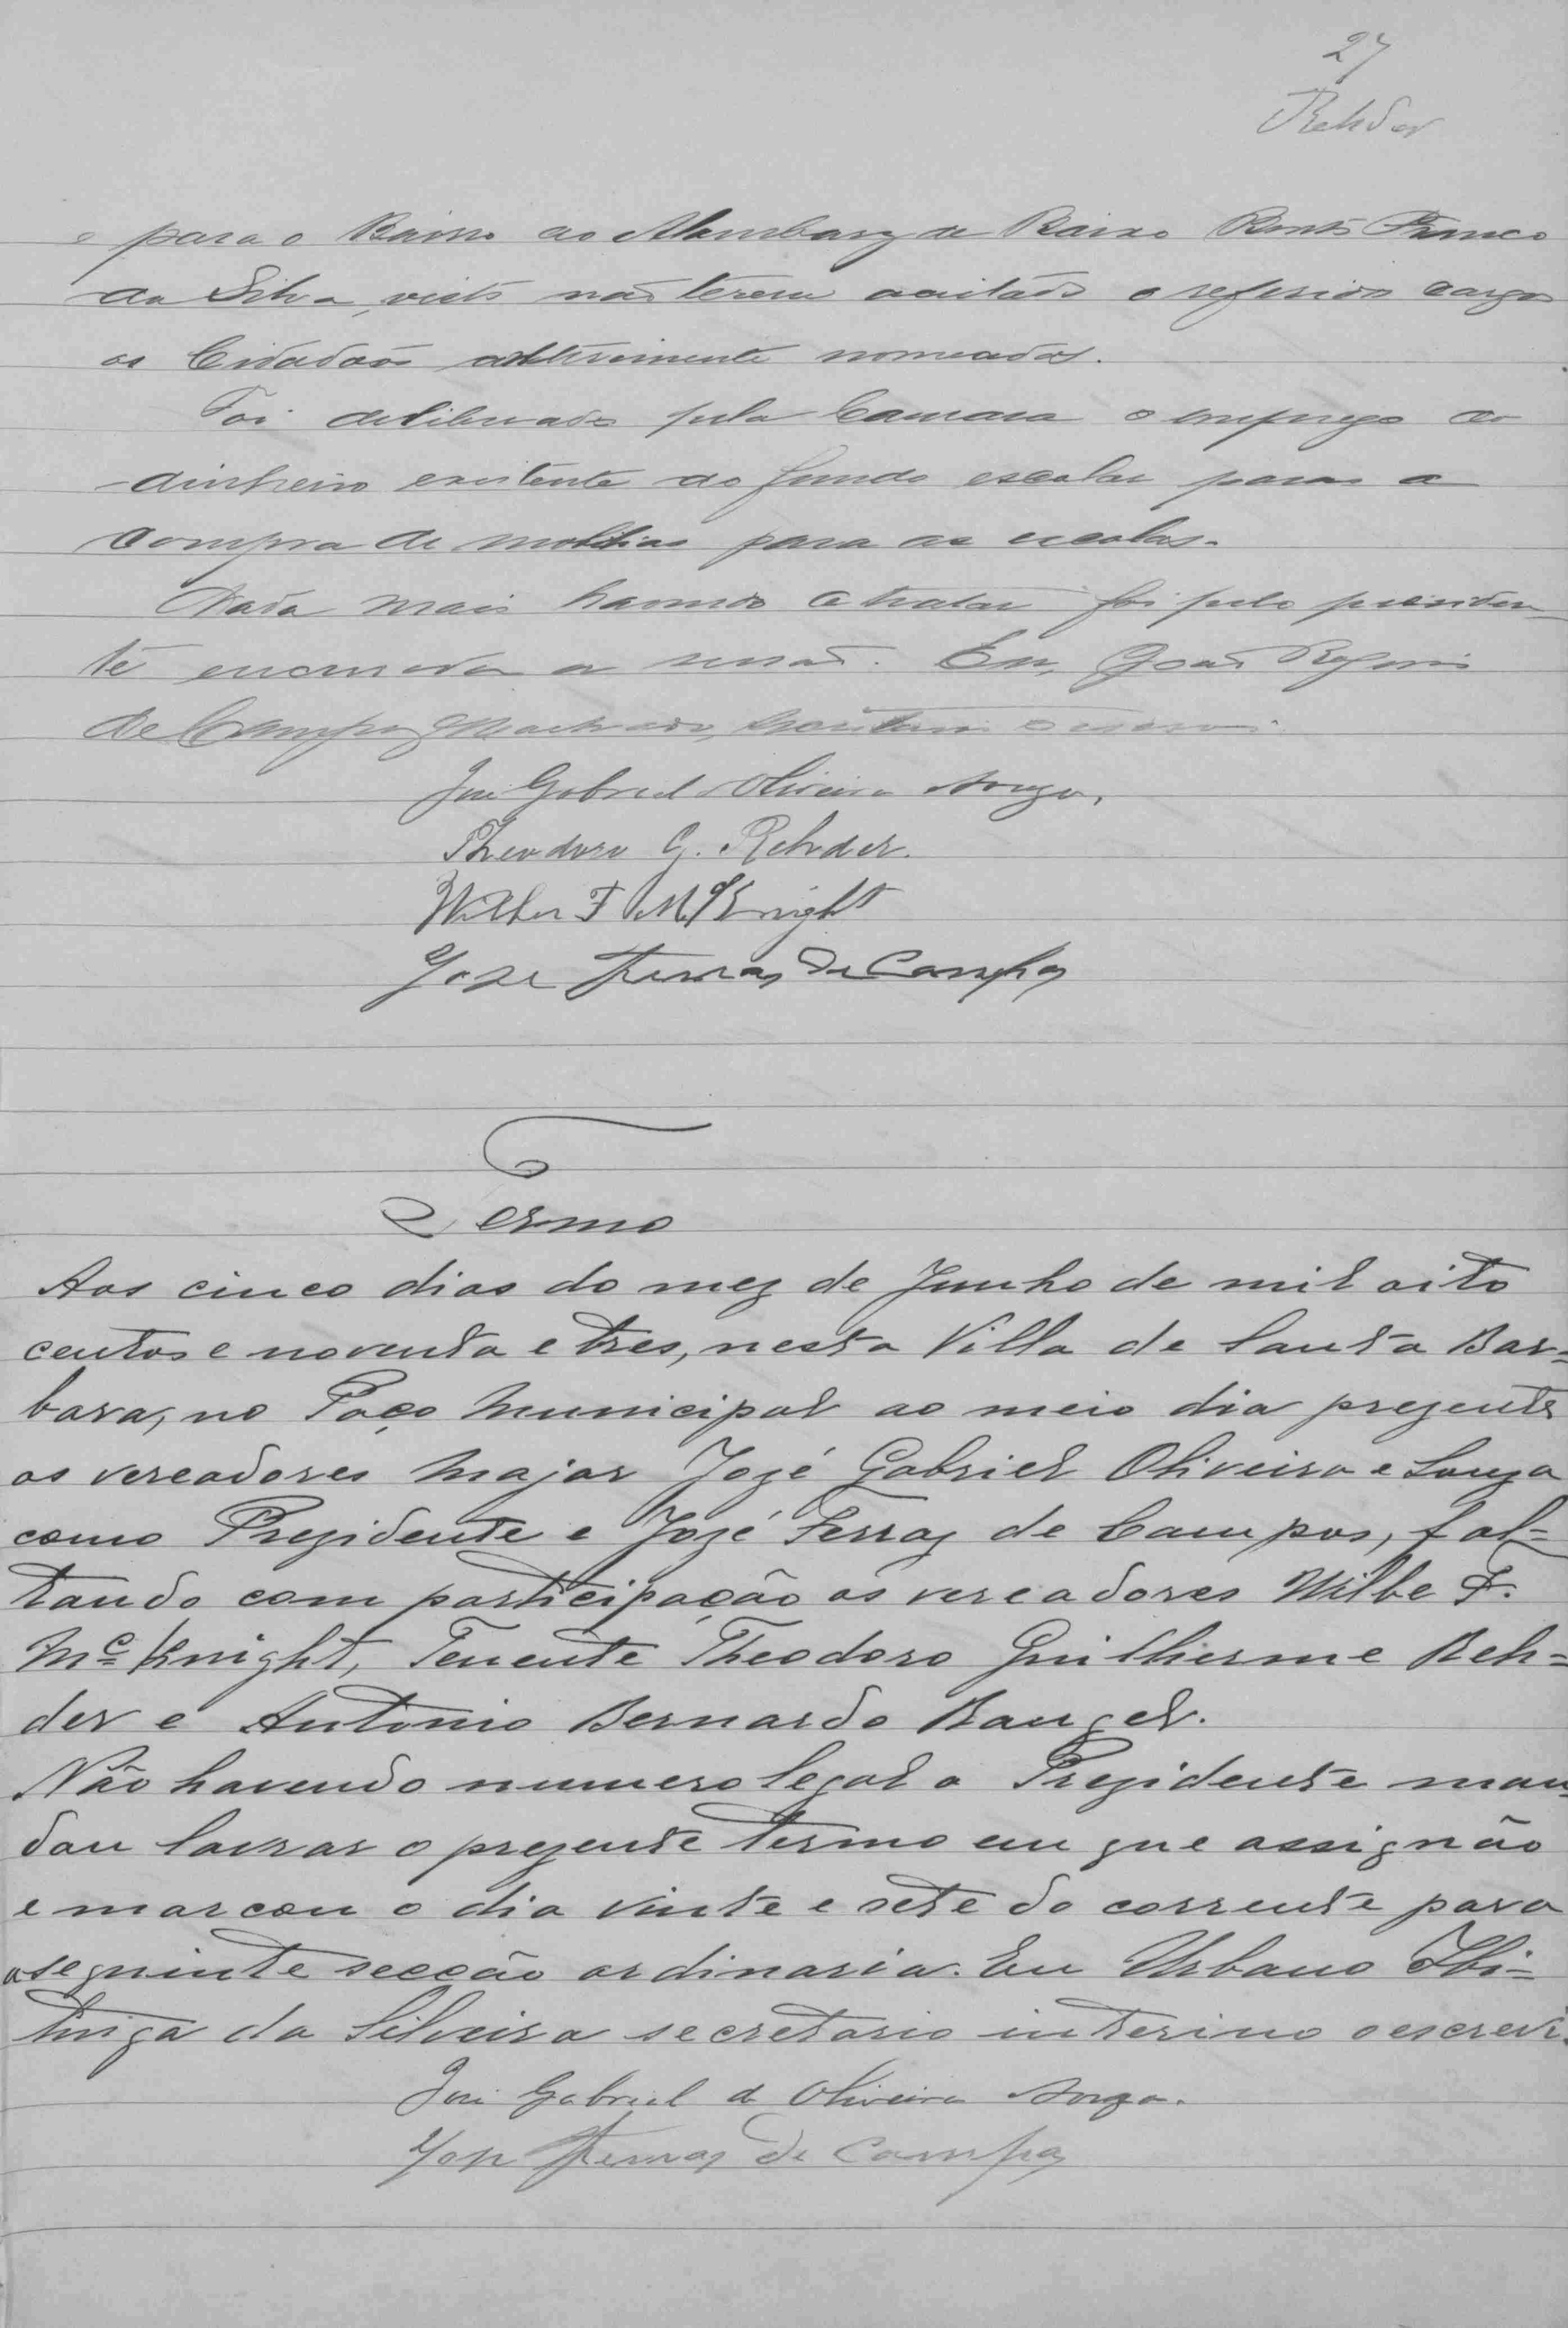 27
Rehder
e para o Bairro do Alambary de Baixo Bento Franco
da Silva, visto não terem aceitado o referido cargo
os Cidadãos anteriormente nomeados.
Foi deliberado pela Camara o emprego do
dinheiro existente do fundo escolar para a
compra de mobilias para as escolas.
Nada mais havendo a tratar foi pelo presiden
te encerrada a sessão. Eu, João
de Campos Machado, o escrevi.
José Gabriel Oliveira Souza.
Theodoro G. Rehder.
Wilber F McKnight
Jose Ferraz de Campos
Termo
Aos cinco dias do mez de Junho de mil oito
centos e noventa e tres, nesta Villa de Santa Bar=
bara, no Paço Municipal ao meio dia prezente
os vereadores Major Jozé Gabriel Oliveira e Souza
como Prezidente e Jozé Ferraz de Campos, fal=
tando com participação os vereadores Wilbe F.
Mc Knight, Tenente Theodoro Guilherme Reh=
der e Antonio Bernardo Rangel.
Não havendo numero legal o Prezidente man=
dou lavrar o prezente termo em que assignão
e marcou o dia vinte e sete do corrente para
a seguinte secção ordinaria. Eu Urbano Ibi=
tinga da Silveira secretario interino o escrevi.
José Gabriel de Oliveira Souza.
Jose Ferraz de Campos